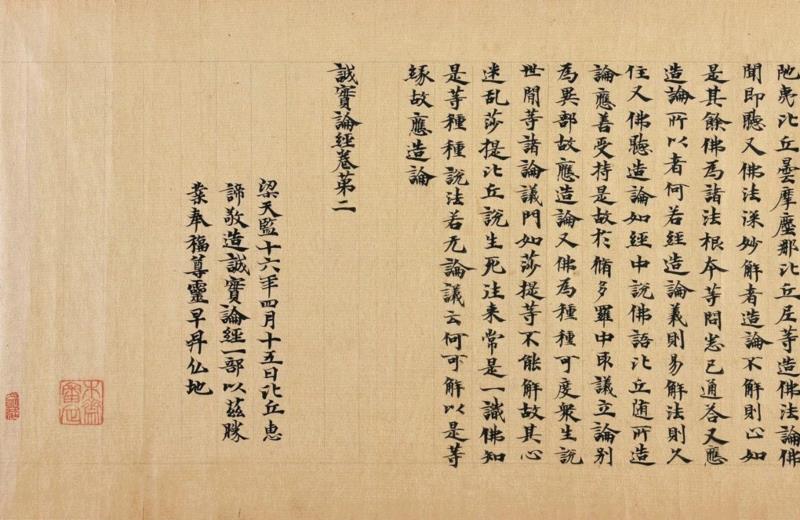 陁夷比丘曇摩塵那比丘尼等造佛法論佛
聞即聽又佛法深妙解者造論不解則止如
是其餘佛為諸法根本等問悉已通答又應
造論所以者何若經造論義則易解法則久
住又佛聽造論如經中說佛語比丘随所造
論應善受持是故於脩多羅中取議立論別
為異部故應造論又佛為種種可度衆生說
世間等諸論議門如莎提等不能解故其心
迷乱莎提比丘說生死往来常是一識佛知
是等種種說法若无論議云何可解以是等
緣故應造論
誠實論經卷第二
梁天監十六年四月十五日比丘恵
諦敬造誠實論經一部以茲勝
業奉福尊靈早昇仏地